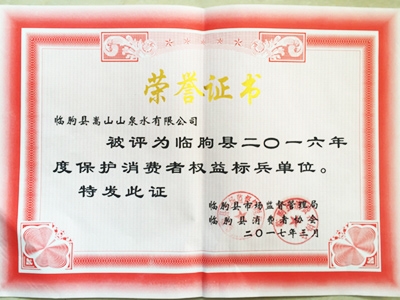 荣誉证书
临朐县嵩山山泉水有限公司
被评为临朐县二〇一六年
度保护消费者权益标兵单位。
特发此证
临朐县市场监督管理局
临朐县消费者协会
二〇一七年三月